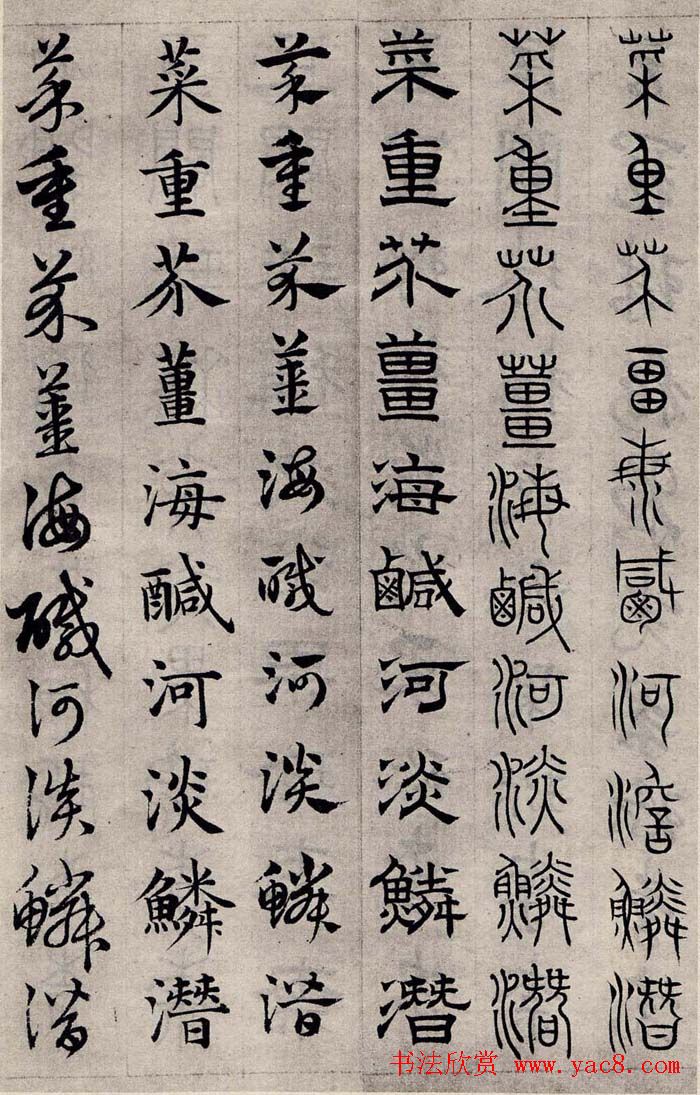 菜重芥薑海鹹河淡鱗潛
菜重芥薑海鹹河淡鱗潛
菜重芥薑海鹹河淡鱗潛
菜重芥薑海鹹河淡鱗潛
菜重芥薑海醎河淡鱗潛
菜重芥薑海鹹河淡鱗潛
书法欣赏 www.yac8.com